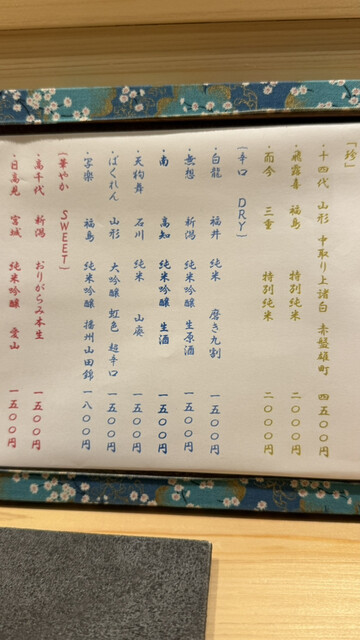 「珍」
・十四代 山形 中取り上諸白 赤盤雄町 四五〇〇円
・飛露喜 福島 特別純米 二〇〇〇円
・而今 三重 特別純米 二〇〇〇円
(辛口 DRY)
・白龍 福井 純米 磨き九割 一五〇〇円
・無想 新潟 純米吟醸 生原酒 一五〇〇円
・南 高知 純米吟醸 生酒 一五〇〇円
・天狗舞 石川 純米 山廃 一五〇〇円
・ばくれん 山形 大吟醸 虹色 超辛口 一五〇〇円
・写樂 福島 純米吟醸 播州山田錦 一八〇〇円
(華やか SWEET)
・高千代 新潟 おりがらみ本生 一五〇〇円
・日高見 宮城 純米吟醸 愛山 一五〇〇円